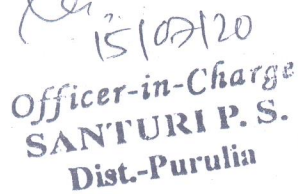 15/07/20
Officer-in-Charge
SANTURI P. S.
Dist.-Purulia